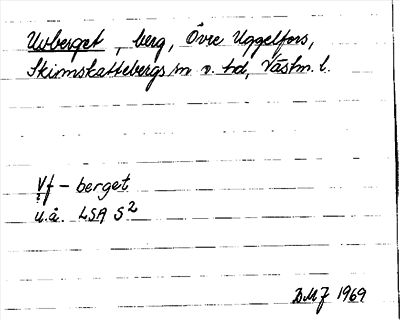 Uvberget, berg, Övre Uggelfors,
Skinnskattebergs sn o. hd, Västm. l.
Vf - berget
u.å. LSA S²
BMJ 1969